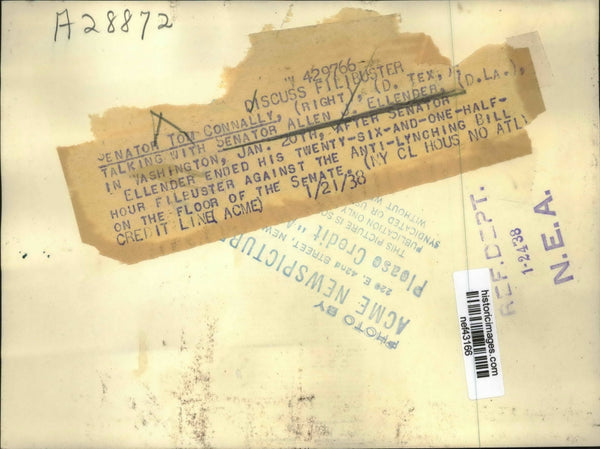 A28872
429766
DISCUSS FILIBUSTER
SENATOR TOM CONNALLY, (RIGHT), (D. TEX.),
TALKING WITH SENATOR ALLEN ELLENDER, (D.LA.),
IN WASHINGTON, JAN. 20TH, AFTER SENATOR
ELLENDER ENDED HIS TWENTY-SIX-AND-ONE-HALF-
HOUR FILBUSTER AGAINST THE ANTI-LYNCHING BILL
ON THE FLOOR OF THE SENATE. (NY CL HOUS NO ATL)
CREDIT LINE( ACME) 1/21/38
PHOTO BY
ACME NEWSPICTURE
220 E. 42nd STREET, NEW
Please Credit "A
THIS PICTURE IS SO
PUBLICATION ONLY
SYNDICATED OR U
WITHOUT W
REF. DEPT.
1-24-38
N.E.A.
historicimages.com
nef43166